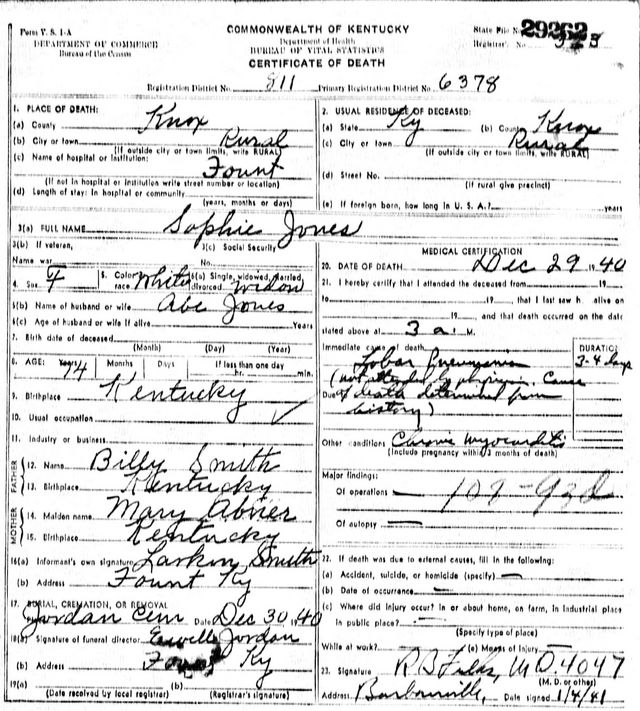 Form V. S. 1-A
DEPARTMENT OF COMMERCE
Bureau of the Census
COMMONWEALTH OF KENTUCKY
Department of Health
BUREAU OF VITAL STATISTICS
CERTIFICATE OF DEATH
State File No. 29262
Registrar's No. 323
Registration District No. 811 Primary Registration District No. 6378
1. PLACE OF DEATH:
(a) County Knox
(b) City or town Rural
(If outside city or town limits, write RURAL)
(c) Name of hospital or institution: Fount
(If not in hospital or institution write street number or location)
(d) Length of stay: In hospital or community
(years, months or days)
2. USUAL RESIDENCE OF DECEASED:
(a) State Ky (b) County Knox
(c) City or town Rural
(If outside city or town limits, write RURAL)
(d) Street No.
(If rural give precinct)
(e) If foreign born, how long in U. S. A.? years
3(a) FULL NAME Sophie Jones
3(b) If veteran, 3(c) Social Security
Name war No.
4. Sex F 5. Color race White 6(a) Single, widowed, married, divorced Widow
6(b) Name of husband or wife Abe Jones
6(c) Age of husband or wife if alive Years
7. Birth date of deceased
(Month) (Day) (Year)
8. AGE: Years 74 Months Days If less than one day
hr. min.
9. Birthplace Kentucky
10. Usual occupation
11. Industry or business
FATHER
12. Name Billy Smith
13. Birthplace Kentucky
MOTHER
14. Maiden name Mary Abner
15. Birthplace Kentucky
16(a) Informant's own signature Larkin Smith
(b) Address Fount Ky
17. BURIAL, CREMATION, OR REMOVAL
Jordan Cem Date Dec 30 1940
18(a) Signature of funeral director Jordan
(b) Address Fount Ky
19(a) (b)
(Date received by local registrar) (Registrar's signature)
MEDICAL CERTIFICATION
20. DATE OF DEATH Dec 29 1940
21. I hereby certify that I attended the deceased from 19
to 19 , that I last saw h alive on
19 , and that death occurred on the date
stated above at 3 a. M.
Immediate cause of death DURATION
Lobar Pneumonia 3-4 days
(not attended by physician. Cause
Due of death determined from
history)
Other conditions Chronic Myocarditis
(Include pregnancy within 3 months of death)
Major findings:
Of operations 108-93d
Of autopsy
22. If death was due to external causes, fill in the following:
(a) Accident, suicide, or homicide (specify)
(b) Date of occurrence
(c) Where did injury occur? In or about home, on farm, in industrial place
in public place?
(Specify type of place)
While at work? (e) Means of Injury
23. Signature R B M.D. 4047
(M. D. or other)
Address Barbourville, Date signed 1/4/41